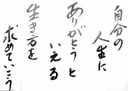 自分の
人生に
ありがとうと
いえる
生き方を
求めていこう